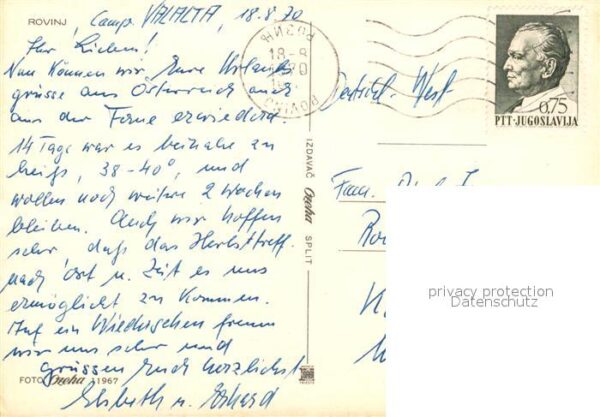 ROVINJ, Camp. VALALTA, 18.8.70
Ihr Lieben!
Nun können wir Eure Urlaubs
grüsse aus Österreich auch
aus der Ferne erwiedern.
14 Tage war es beinahe zu
heiß, 38-40°, und
wollen noch weitere 2 Wochen
bleiben. Auch wir hoffen
sehr, daß das Herbsttreff.
nach Ort u. Zeit es uns
ermöglicht zu kommen.
Auf ein Wiedersehen freuen
wir uns sehr und
grüssen Euch herzlichst
FOTO Ozeha 11967
Elsbeth u.
IZDAVAČ Ozeha SPLIT
РОВИЊ
18-8
ROVINJ
0,75
PTT-JUGOSLAVIJA
Deutschl. West
Fam.
privacy protection
Datenschutz